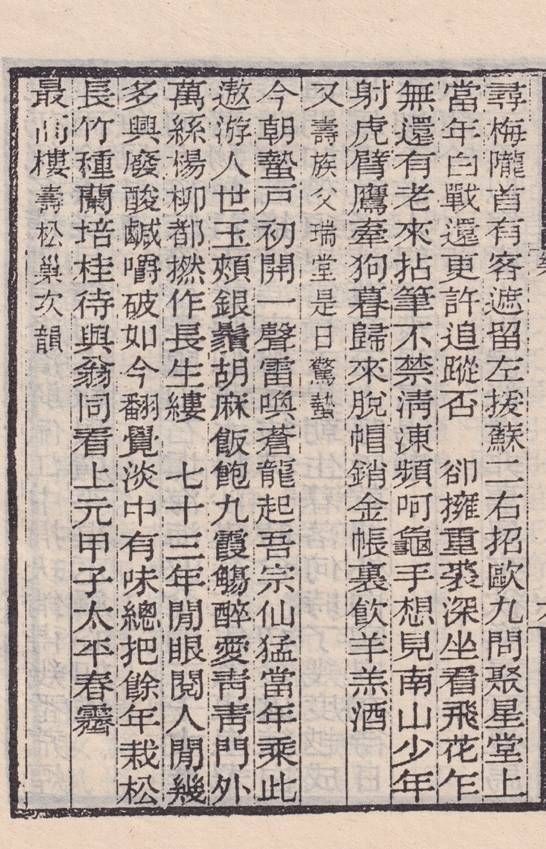 尋梅隴首有客遮留左援蘇二右招歐九問聚星堂上
當年白戰還更許追蹤否　卻擁重裘深坐看飛花乍
無還有老來拈筆不禁清凍頻呵龜手想見南山少年
射虎臂鷹牽狗暮歸來脫帽銷金帳裏飲羊羔酒
又壽族父瑞堂是日驚蟄
今朝蟄戶初開一聲雷喚蒼龍起吾宗仙猛當年乘此
遨游人世玉頰銀鬚胡麻飯飽九霞觴醉愛靑靑門外
萬絲楊柳都撚作長生縷　七十三年閒眼閱人閒幾
多興廢酸鹹嚼破如今翻覺淡中有味總把餘年栽松
長竹種蘭培桂待與翁同看上元甲子太平春霽
最高樓壽松巢次韻